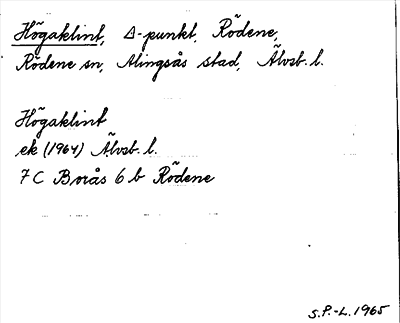 Högaklint, Δ-punkt, Rödene,
Rödene sn, Alingsås stad, Älvsb. l.
Högaklint
ek (1964) Älvsb. l.
7 C Borås 6 b Rödene
S.P.-L. 1965